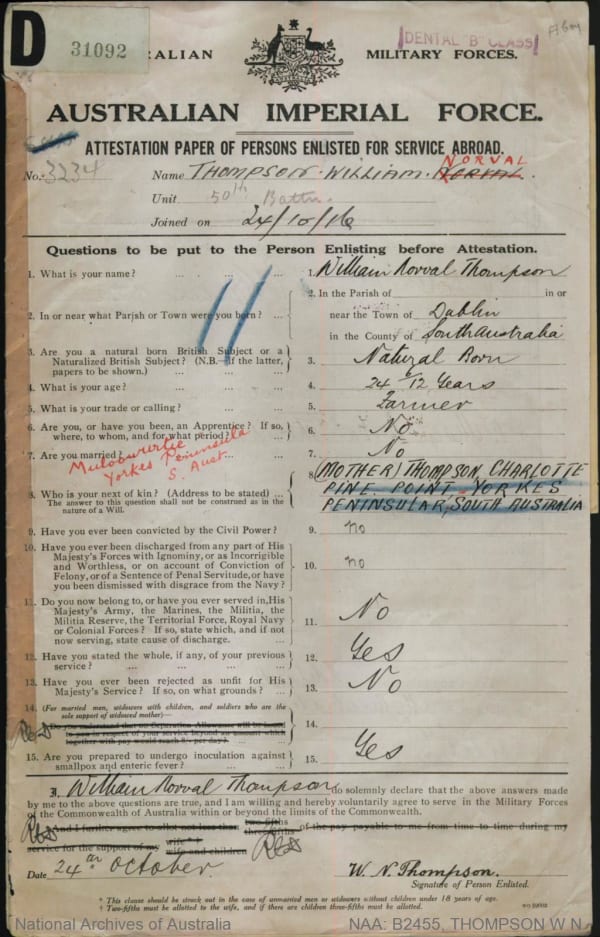 D
31092
AUSTRALIAN MILITARY FORCES.
DENTAL "B" CLASS
AUSTRALIAN IMPERIAL FORCE.
ATTESTATION PAPER OF PERSONS ENLISTED FOR SERVICE ABROAD.
No. 3234 Name THOMPSON. WILLIAM. NORVAL.
Unit 50th Battn.
Joined on 24/10/16
Questions to be put to the Person Enlisting before Attestation.
1. What is your name? ... ... ... 1. William Norval Thompson
2. In or near what Parish or Town were you born? ... 2. In the Parish of in or
near the Town of Dublin
in the County of South Australia
3. Are you a natural born British Subject or a
Naturalized British Subject? (N.B.—If the latter, 3. Natural Born
papers to be shown.)
4. What is your age? ... ... ... 4. 24 6/12 Years
5. What is your trade or calling? ... ... 5. Farmer
6. Are you, or have you been, an Apprentice? If so,
where, to whom, and for what period? 6. No
7. Are you married? ... ... 7. No
Muloowurtie
Yorkes Peninsula
S. Aust.
8. Who is your next of kin? (Address to be stated) ...
The answer to this question shall not be construed as in the
nature of a Will.
(MOTHER) THOMPSON, CHARLOTTE
PINE POINT YORKES
PENINSULAR, SOUTH AUSTRALIA
9. Have you ever been convicted by the Civil Power? 9. no
10. Have you ever been discharged from any part of His
Majesty's Forces with Ignominy, or as Incorrigible
and Worthless, or on account of Conviction of
Felony, or of a Sentence of Penal Servitude, or have
you been dismissed with disgrace from the Navy? 10. no
11. Do you now belong to, or have you ever served in, His
Majesty's Army, the Marines, the Militia, the
Militia Reserve, the Territorial Force, Royal Navy
or Colonial Forces? If so, state which, and if not
now serving, state cause of discharge. ... ... 11. No
12. Have you stated the whole, if any, of your previous
service? ... ... ... 12. Yes
13. Have you ever been rejected as unfit for His
Majesty's Service? If so, on what grounds? ... 13. No
14. (For married men, widowers with children, and soldiers who are the
sole support of widowed mother)— 14.
Do you understand that no Separation Allowance will be issued
to you in respect of your service beyond an amount which
together with pay would reach 8/- per day?
15. Are you prepared to undergo inoculation against
smallpox and enteric fever? ... ... 15. Yes
I, William Norval Thompson, do solemnly declare that the above answers made
by me to the above questions are true, and I am willing and hereby voluntarily agree to serve in the Military Forces
of the Commonwealth of Australia within or beyond the limits of the Commonwealth.
And I further agree to allot not less than two-fifths three-fifths of the pay payable to me from time to time during my
service for the support of my wife wife and children
Date 24th October. W. N. Thompson.
Signature of Person Enlisted.
* This clause should be struck out in the case of unmarried men or widowers without children under 18 years of age.
† Two-fifths must be allotted to the wife, and if there are children three-fifths must be allotted.
National Archives of Australia NAA: B2455, THOMPSON W N